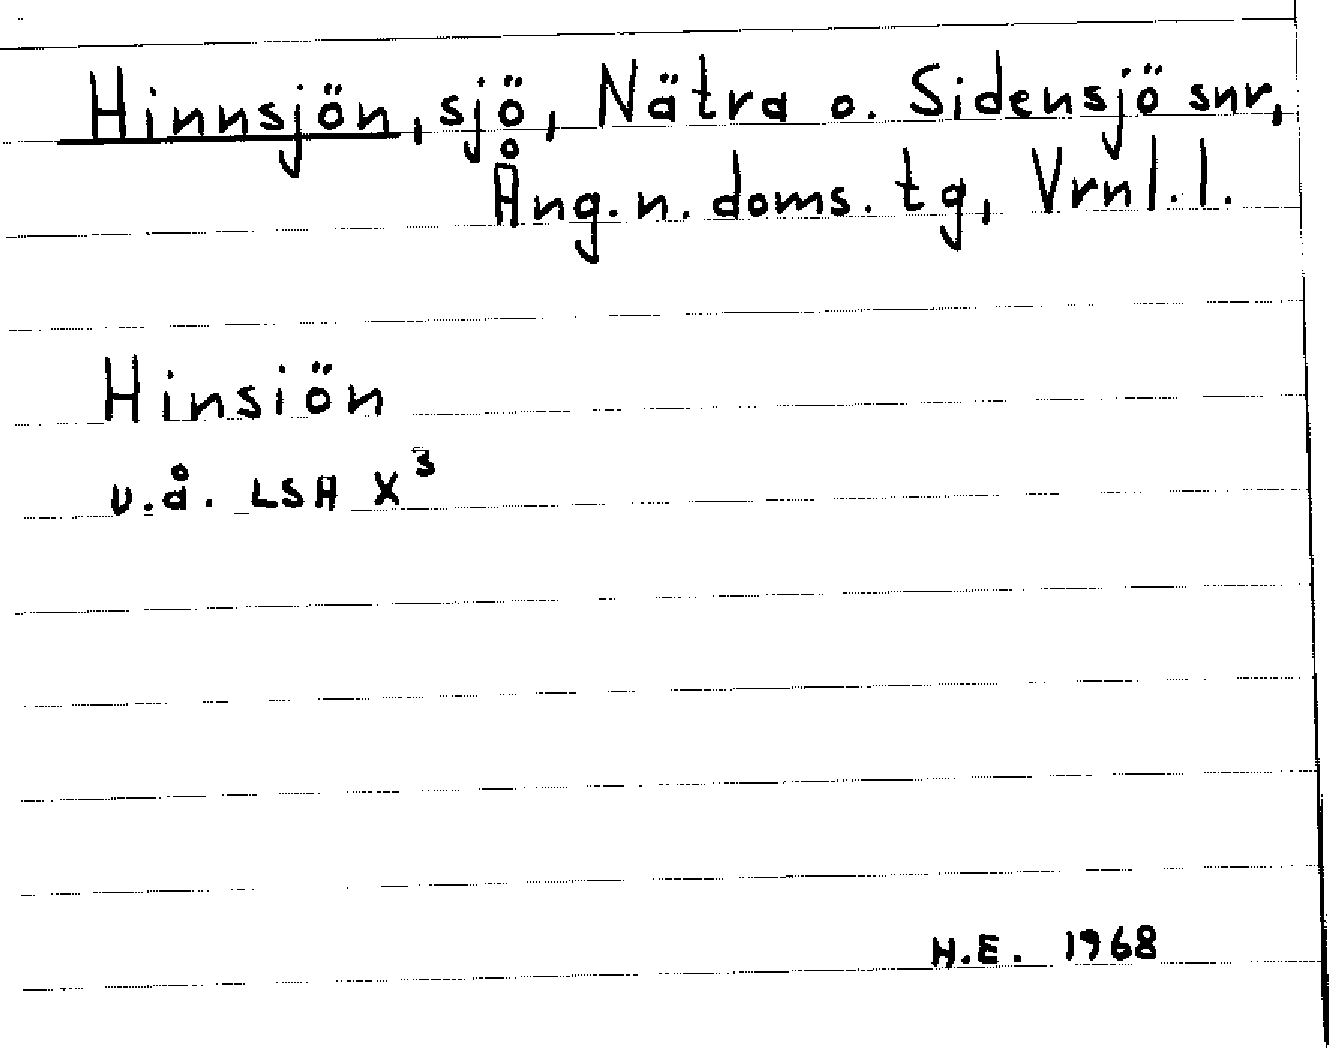 Hinnsjön, sjö, Nätra o. Sidensjö snr,
Ång. n. doms. tg, Vrnl. l.
Hinsiön
u.å. LSH X³
H.E. 1968